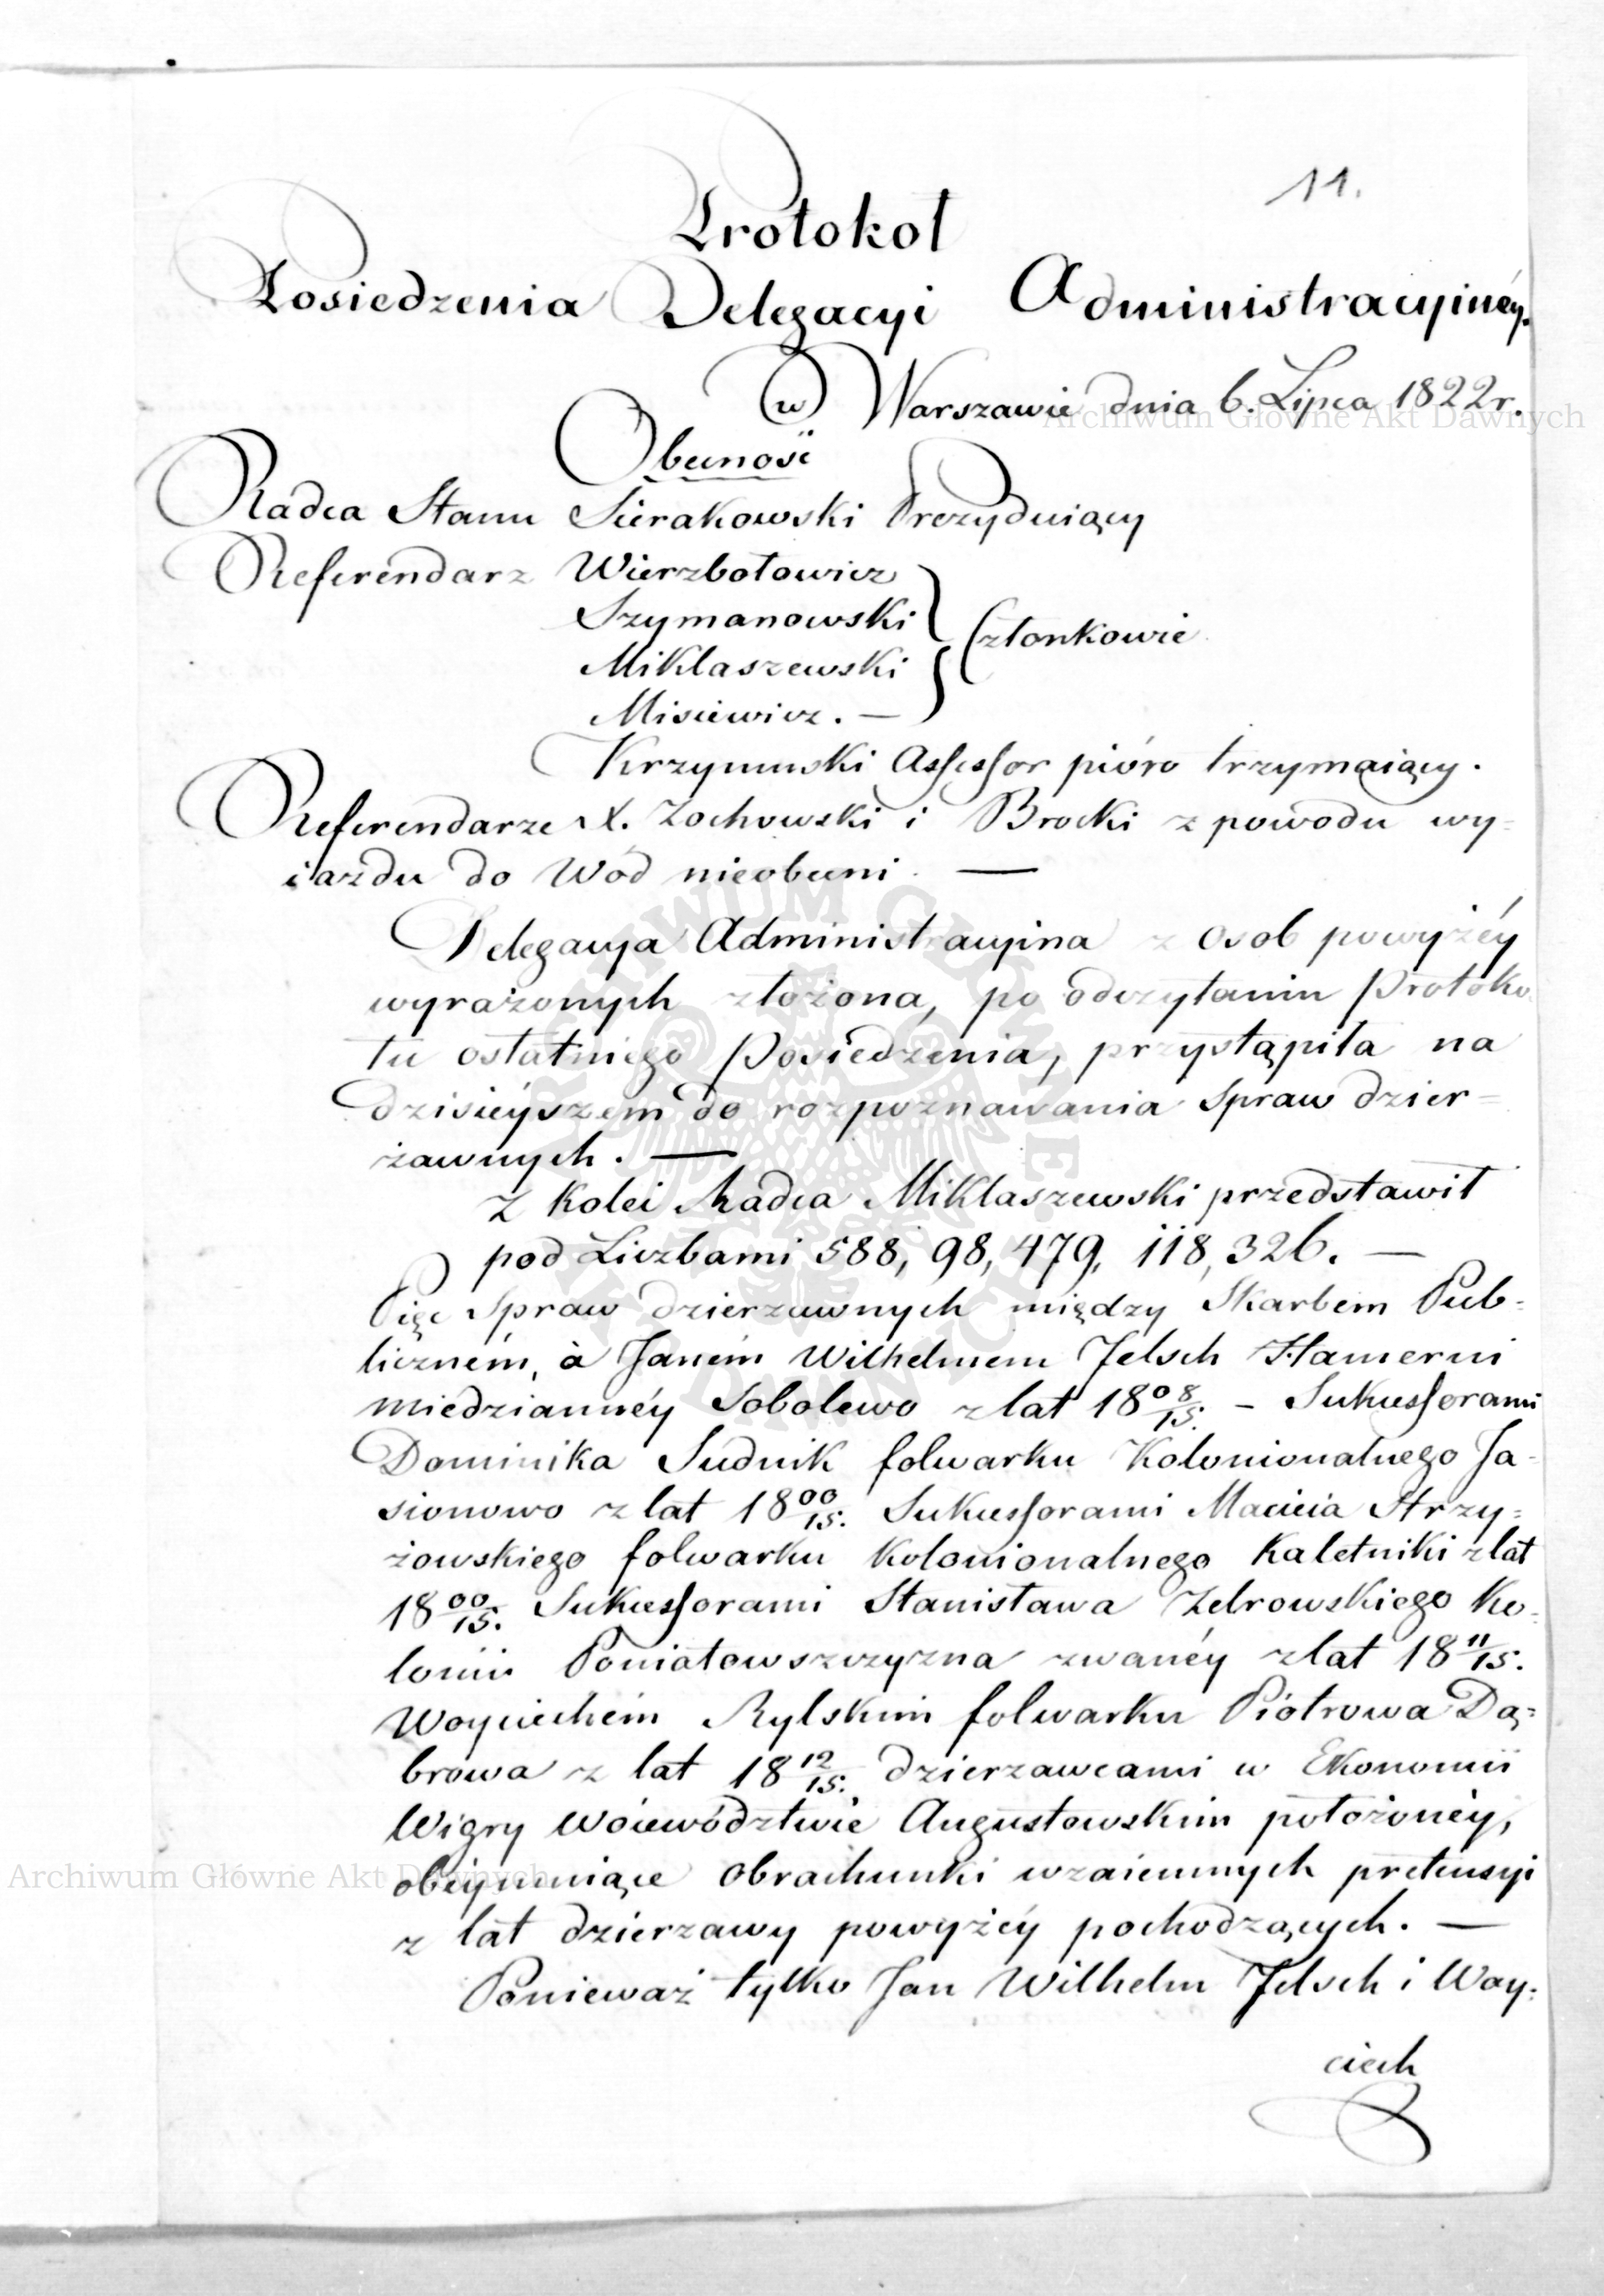 11.
Protokoł
Posiedzenia Delegacyi Administracyinéy.
w Warszawie dnia 6. Lipca 1822 r.
Obecność
Radca Stanu Sierakowski Prezyduiący
Referendarz Wierzbołowicz
Szymanowski
Członkowie
Miklaszewski
Misiewicz. —
Krzymuski Assessor pióro trzymaiący.
Referendarze X. Zochowski i Brocki z powodu wy=
iazdu do Wód nieobecni. —
Delegacya Administracyina z osob powyżéy
wyrażonych złożona, po odczytaniu Protoko
łu ostatniego Posiedzenia, przystąpiła na
dzisieyszem do rozpoznawania Spraw dzier=
żawnych. —
Z kolei Radca Miklaszewski przedstawił
pod Liczbami 588, 98, 479, 118, 326. —
Pięc Spraw dzierzawnych między Skarbem Pub=
liczném, à Janém Wilhelmem Jelsch Hamerni
miedzianney Sobolewo z lat 18 08/15. — Sukcessorami
Dominika Sudnik folwarku Kolonionalnego Ja=
sionowo z lat 18 00/15. Sukcessorami Macieia Strzy=
żowskiego folwarku Kolonionalnego Kaletniki z lat
18 00/15. Sukcessorami Stanisława Zebrowskiego Ko=
lonii Poniatowszczyzna zwanéy z lat 18 11/15.
Woyciechém Rylskim folwarku Piotrowa Dą=
browa z lat 18 12/15. dzierzawcami w Ekonomii
Wigry Woiewództwie Augustowskim położonéy,
obeymuiące Obrachunki wzaiemnych pretensyi
z lat dzierzawy powyżéy pochodzących. —
Ponieważ tylko Jan Wilhelm Jelsch i Woy=
ciech
Archiwum Główne Akt Dawnych
Archiwum Główne Akt Dawnych
ARCHIWUM GŁÓWNE AKT DAWNYCH